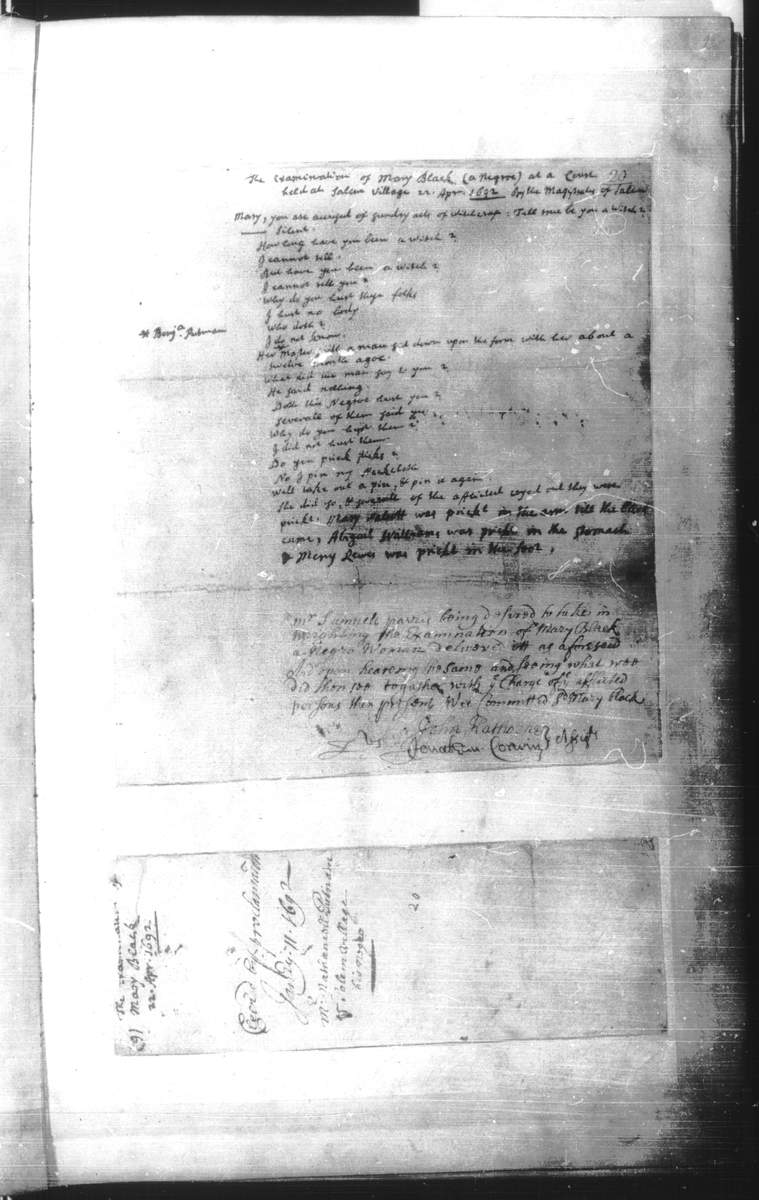 The examination of Mary Black (a Negroe) at a Court
held at Salem Village 22. Apr. 1692 By the Magistrates of Salem
Mary, you are accused of sundry acts of witchcraft: Tell me be you a Witch?
—— Silent.
How long have you been a witch?
I cannot tell.
But have you been a witch?
I cannot tell you.
Why do you hurt these folks
I hurt no body
Who doth?
* Benja Putman
I do not know.
Her Master saith a man sat down upon the form with her about a
twelve month agoe.
What did the man say to you?
He said nothing.
Doth this Negroe hurt you?
Severall of them said yes.
Why do you hurt them?
I did not hurt them.
Do you prick sticks?
No I pin my Neckcloth
Well take out a pin, & pin it again.
She did so, & severall of the afflicted cryed out they were
prickt. Mary Walcott was prickt in the arm till the blood
came, Abigail Williams was prickt in the stomach
& Mercy Lewes was prickt in the foot.
mr Samuell parris being desired to take in
wrighting the Examination of Mary Black
a Negro Woman delivered itt as aforesaid
And upon heareing the same and seeing what wee
did then see togather with ye Charge of ye afflicted
persons then present Wee Committed sd Mary Black
John Hathorne
Jonathan Corwin } Assists
The examination of
Mary Black
22. Apr. 1692
(9)
Cleared by proclamation
Jan'ry 11. 1692
Mr Nathaniell Putnam
of Salem Village
his negro
20